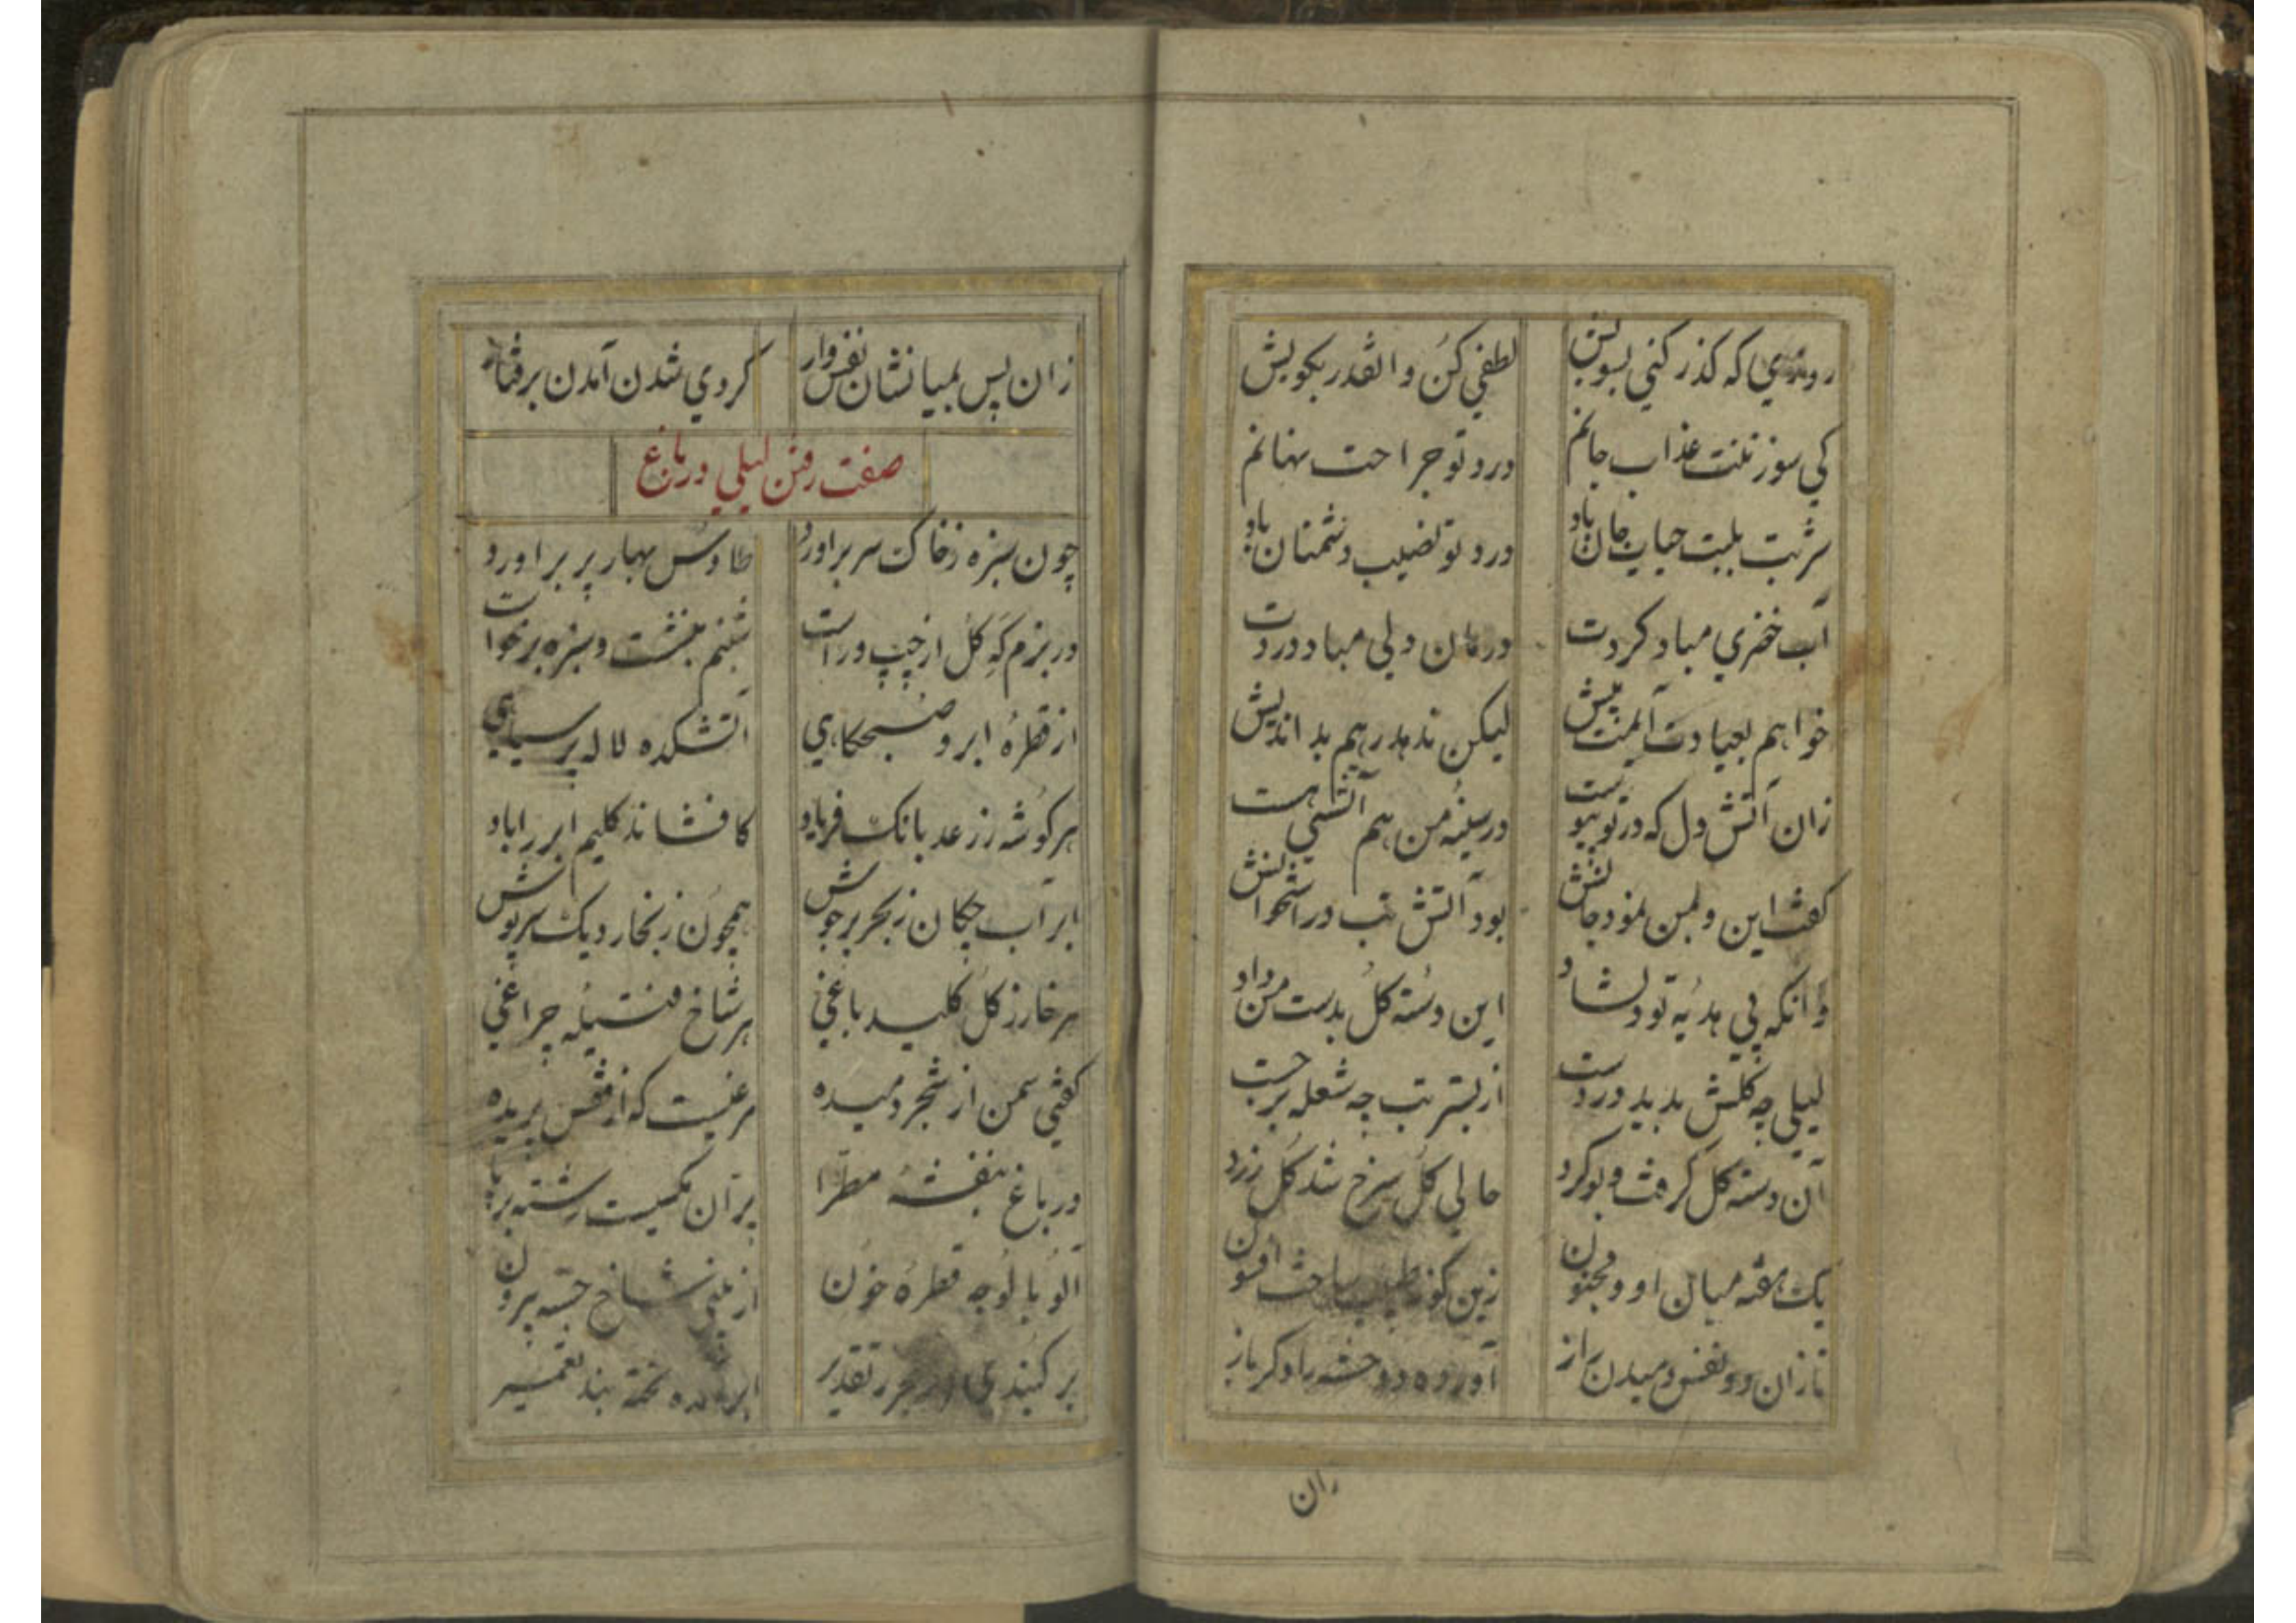 روزی که کذر کنی بسویش لطفی کن و آنقدر بکویش
کی سوز تنت عذاب جانم درد تو جراحت نهانم
شربت بلبت حیات جان باد درد تو نصیب دشمنان باد
آب خضری مباد کردت درمان دلی مباد دردت
خواهم بعیادت آیمت پیش لیکن ندهد رهم بد اندیش
زان آتش دل که در تو پیوست در سینهٔ من هم آتشی هست
کفت این و بمن نمود جانش بود آتش تب در استخوانش
وانکه پی هدیهٔ تو دلشاد این دستهٔ کل بدست من داد
لیلی چه کلش بدید در دست از بستر تب چه شعله برجست
آن دسته کل کرفت و بو کرد حالی کل سرخ شد کل زرد
یک هفته میان او و مجنون زین کونه طبیب ساخت افسون
تا زان دو نفس دمیدن راز آورده دو خسته را دکر باز
زان
زان پس بمیانشان نفس وار کردی شدن آمدن برفتار
صفت رفتن لیلی در باغ
چون سبزه ز خاک سر برآورد طاوس بهار پر برآورد
در بزم که کل از چپ و راست شبنم بنشست و سبزه برخواست
از قطرهٔ ابر و صبحکاهی آتشکده لاله پر سیاهی
هر کوشه ز رعد بانک فریاد کافشاند کلیم ابر را باد
ابر آب چکان ز بحر پر جوش همچون ز بخار دیک سرپوش
هر خار ز کل کلید باغی هر شاخ فتیلهٔ چراغی
کفتی سمن از شجر دمیده مرغیست که از قفس پریده
در باغ بنفشهٔ مطرا پران مکسیست رشته بر پا
آلو بالو چه قطرهٔ خون از بینی شاخ جسته بیرون
بر کنبدی تقدیر بند تعمیر